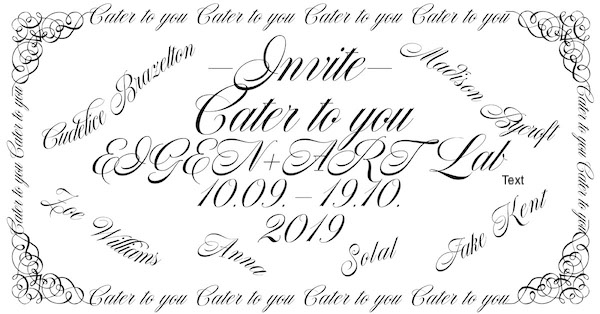 Cater to you Cater to you Cater to you Cater to you
Cater to you Cater to you
Cater to you Cater to you
Cudelice Brazelton
Madison Bycroft
– Invite –
Cater to you
EIGEN+ART Lab
Text
10.09. – 19.10.
2019
Zoe Williams
Anna
Solal
Jake Kent
Cater to you Cater to you Cater to you Cater to you